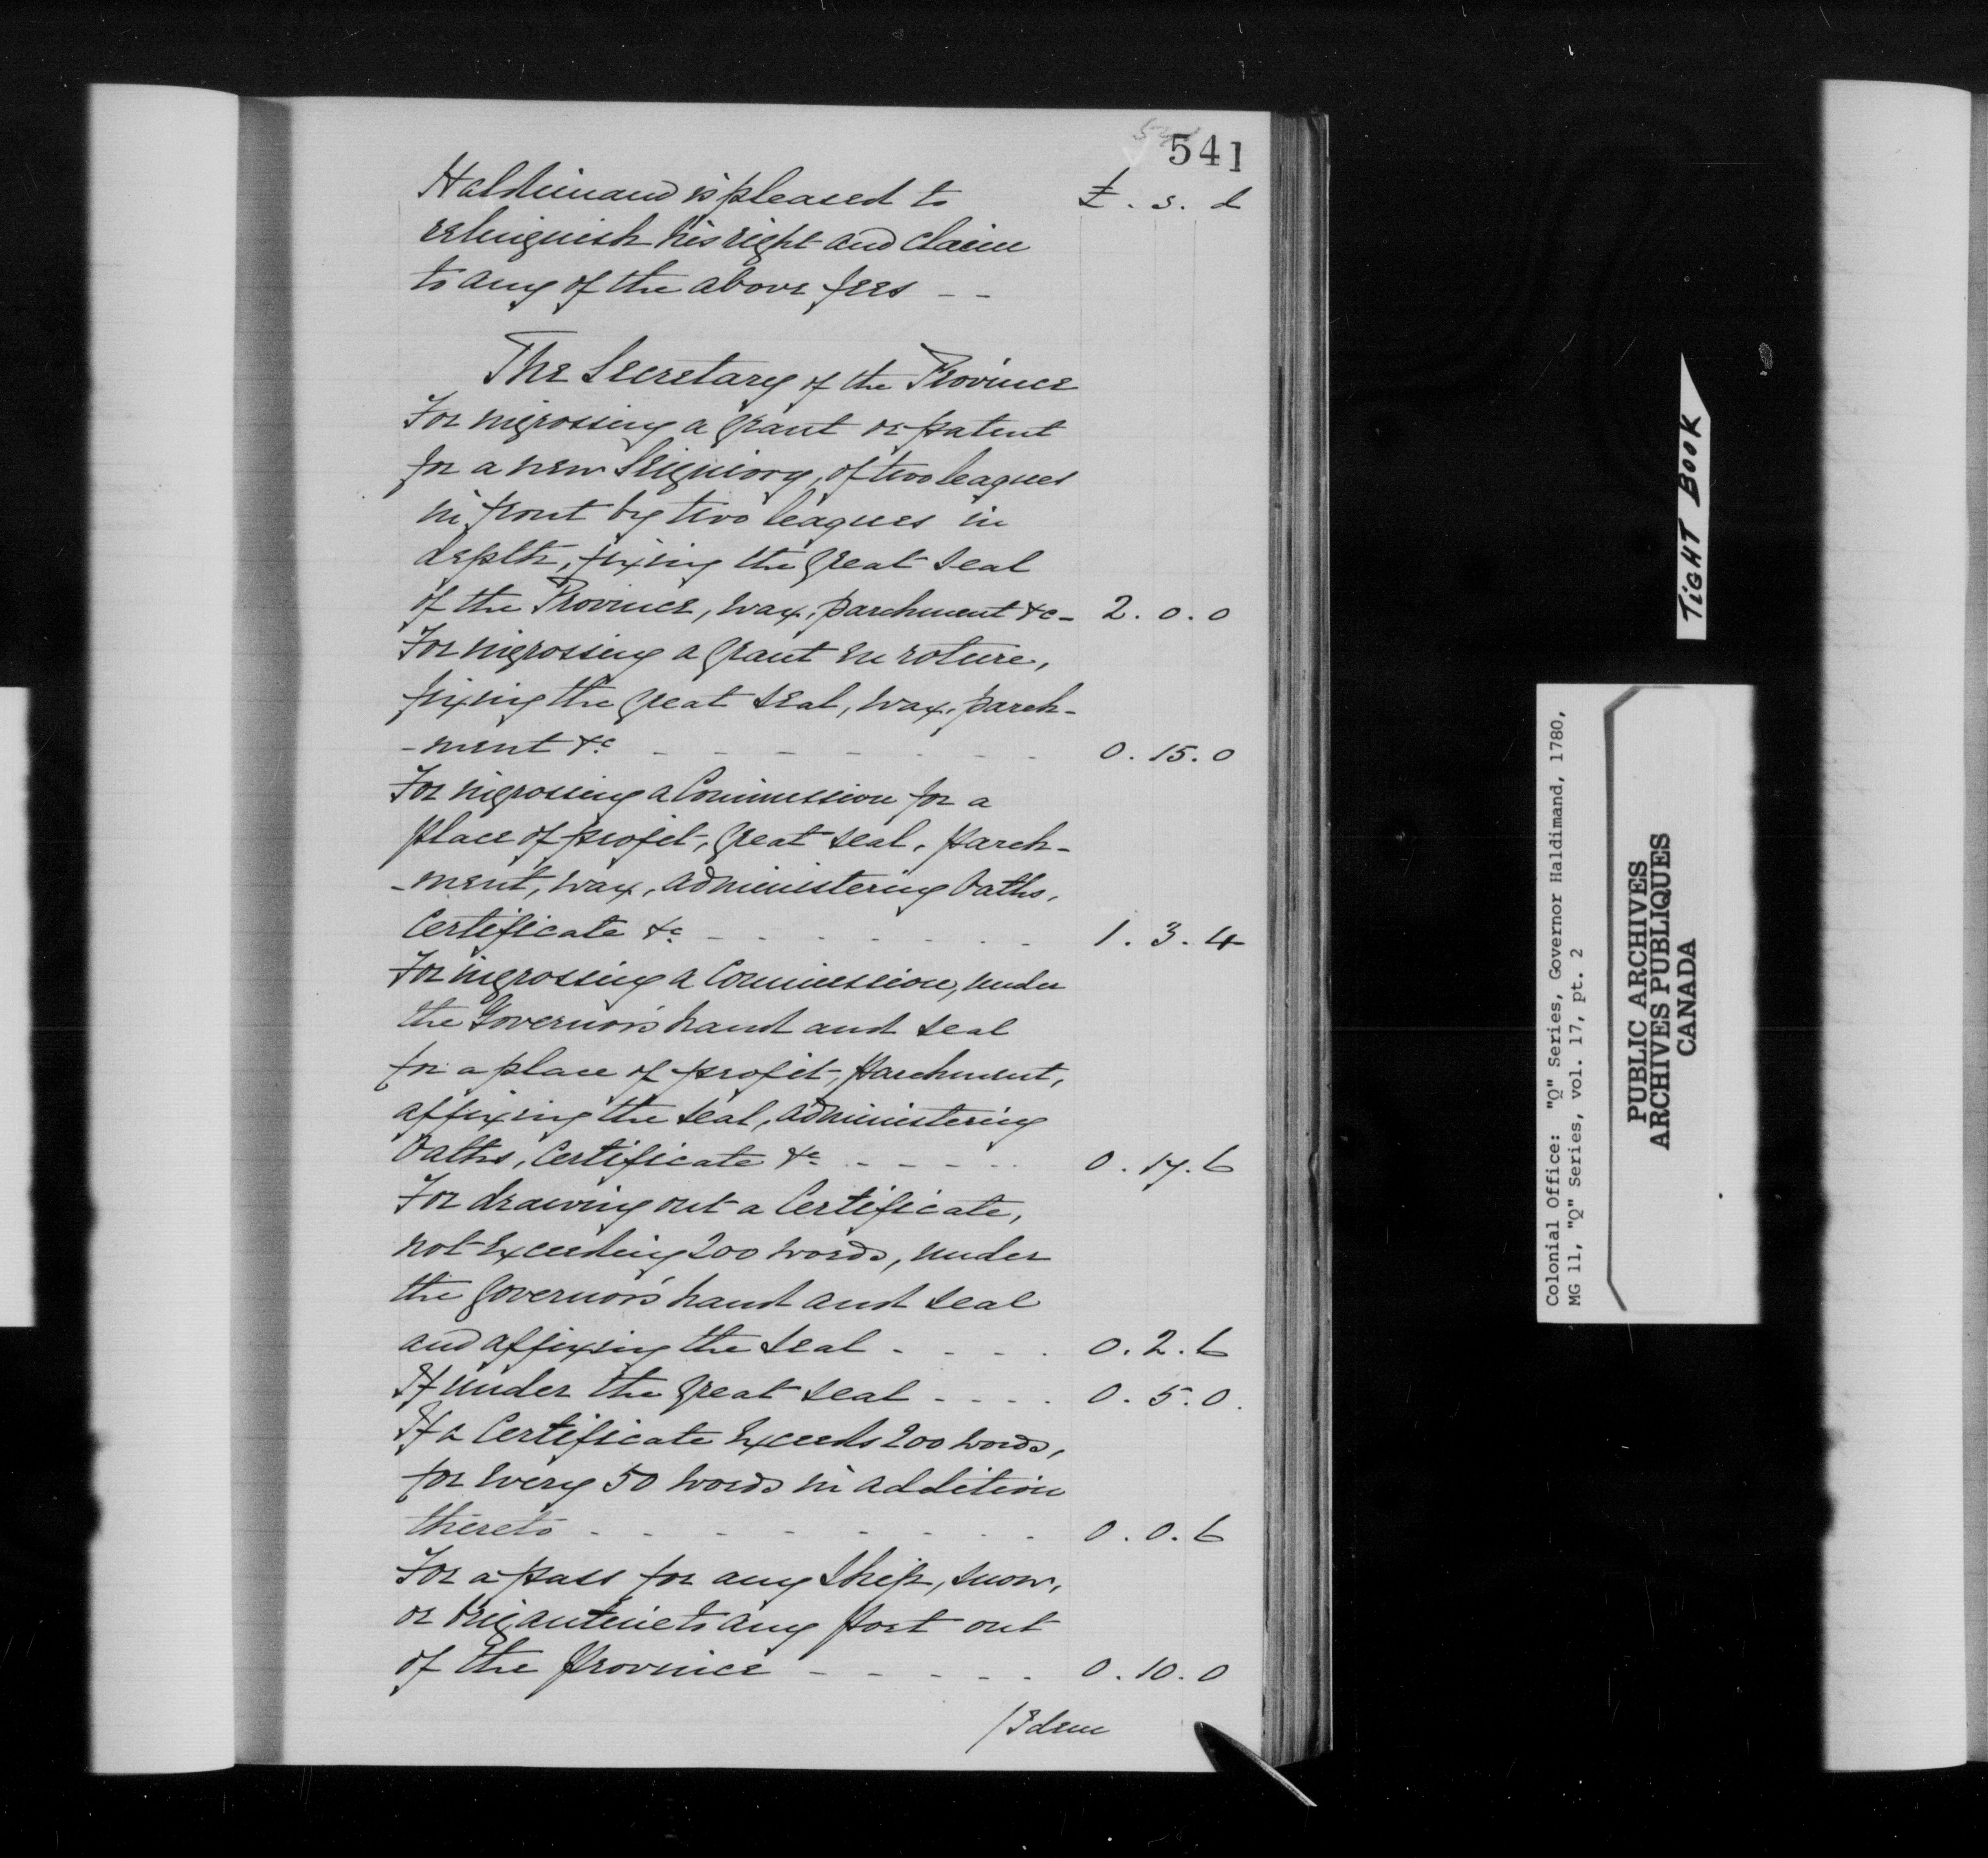 541
Haldimand is pleased to £ . s . d
relinquish his right and claim
to any of the above fees - -
The Secretary of the Province
For ingrossing a grant or patent
for a new Seigniory, of two leagues
in front by two leagues in
depth, fixing the great seal
of the Province, wax, parchment &c - 2 . 0 . 0
For ingrossing a grant en roture,
fixing the great seal, wax, parch-
-ment &c - - - - - - - 0 . 15 . 0
For ingrossing a Commission for a
place of profit, great seal, parch-
-ment, wax, administering Oaths,
Certificate &c - - - - - - 1 . 3 . 4
For ingrossing a Commission, under
the Governor's hand and seal
for a place of profit, parchment,
affixing the seal, administering
Oaths, Certificate &c - - - - - 0 . 17 . 6
For drawing out a Certificate,
not exceeding 200 words, under
the Governor's hand and seal
and affixing the seal - - - - 0 . 2 . 6
If under the great seal - - - - 0 . 5 . 0 .
If a Certificate exceeds 200 words,
for every 50 words in addition
thereto - - - - - - - - 0 . 0 . 6
For a pass for any Ship, snow,
or brigantine to any port out
of the Province - - - - - 0 . 10 . 0
/Idem
TIGHT BOOK
Colonial Office: "Q" Series, Governor Haldimand, 1780,
MG 11, "Q" Series, vol. 17, pt. 2
PUBLIC ARCHIVES
ARCHIVES PUBLIQUES
CANADA